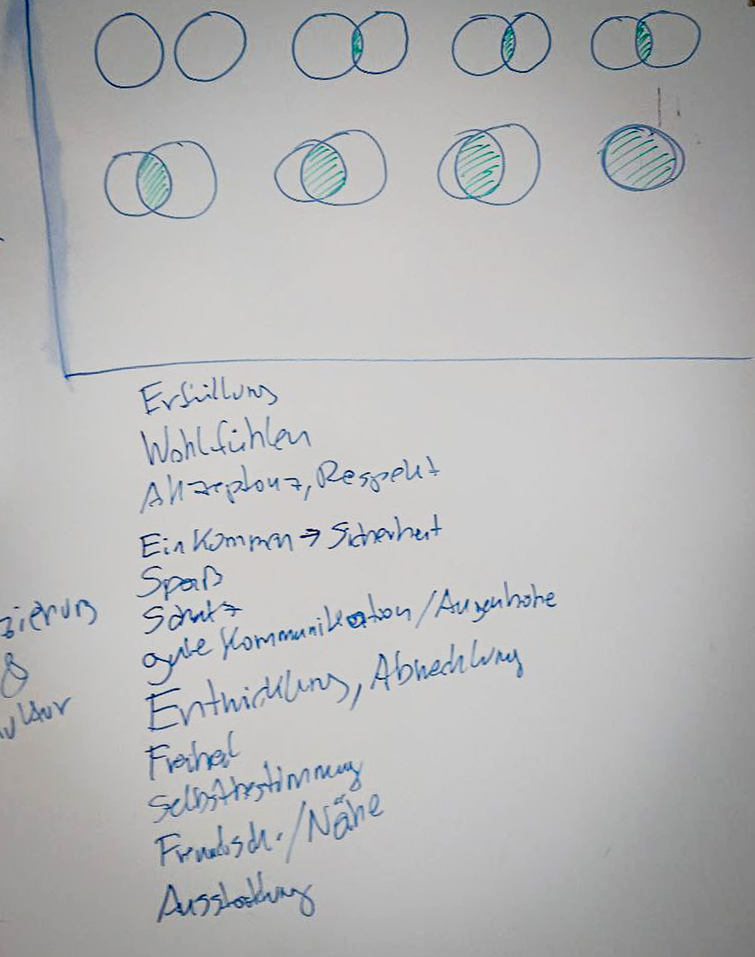 Erfüllung
Wohlfühlen
Akzeptanz, Respekt
Einkommen → Sicherheit
Spaß
Schutz
gute Kommunikation / Augenhöhe
Entwicklung, Abwechlung
Freiheit
Selbstbestimmung
Freundsch. / Nähe
zierung
&